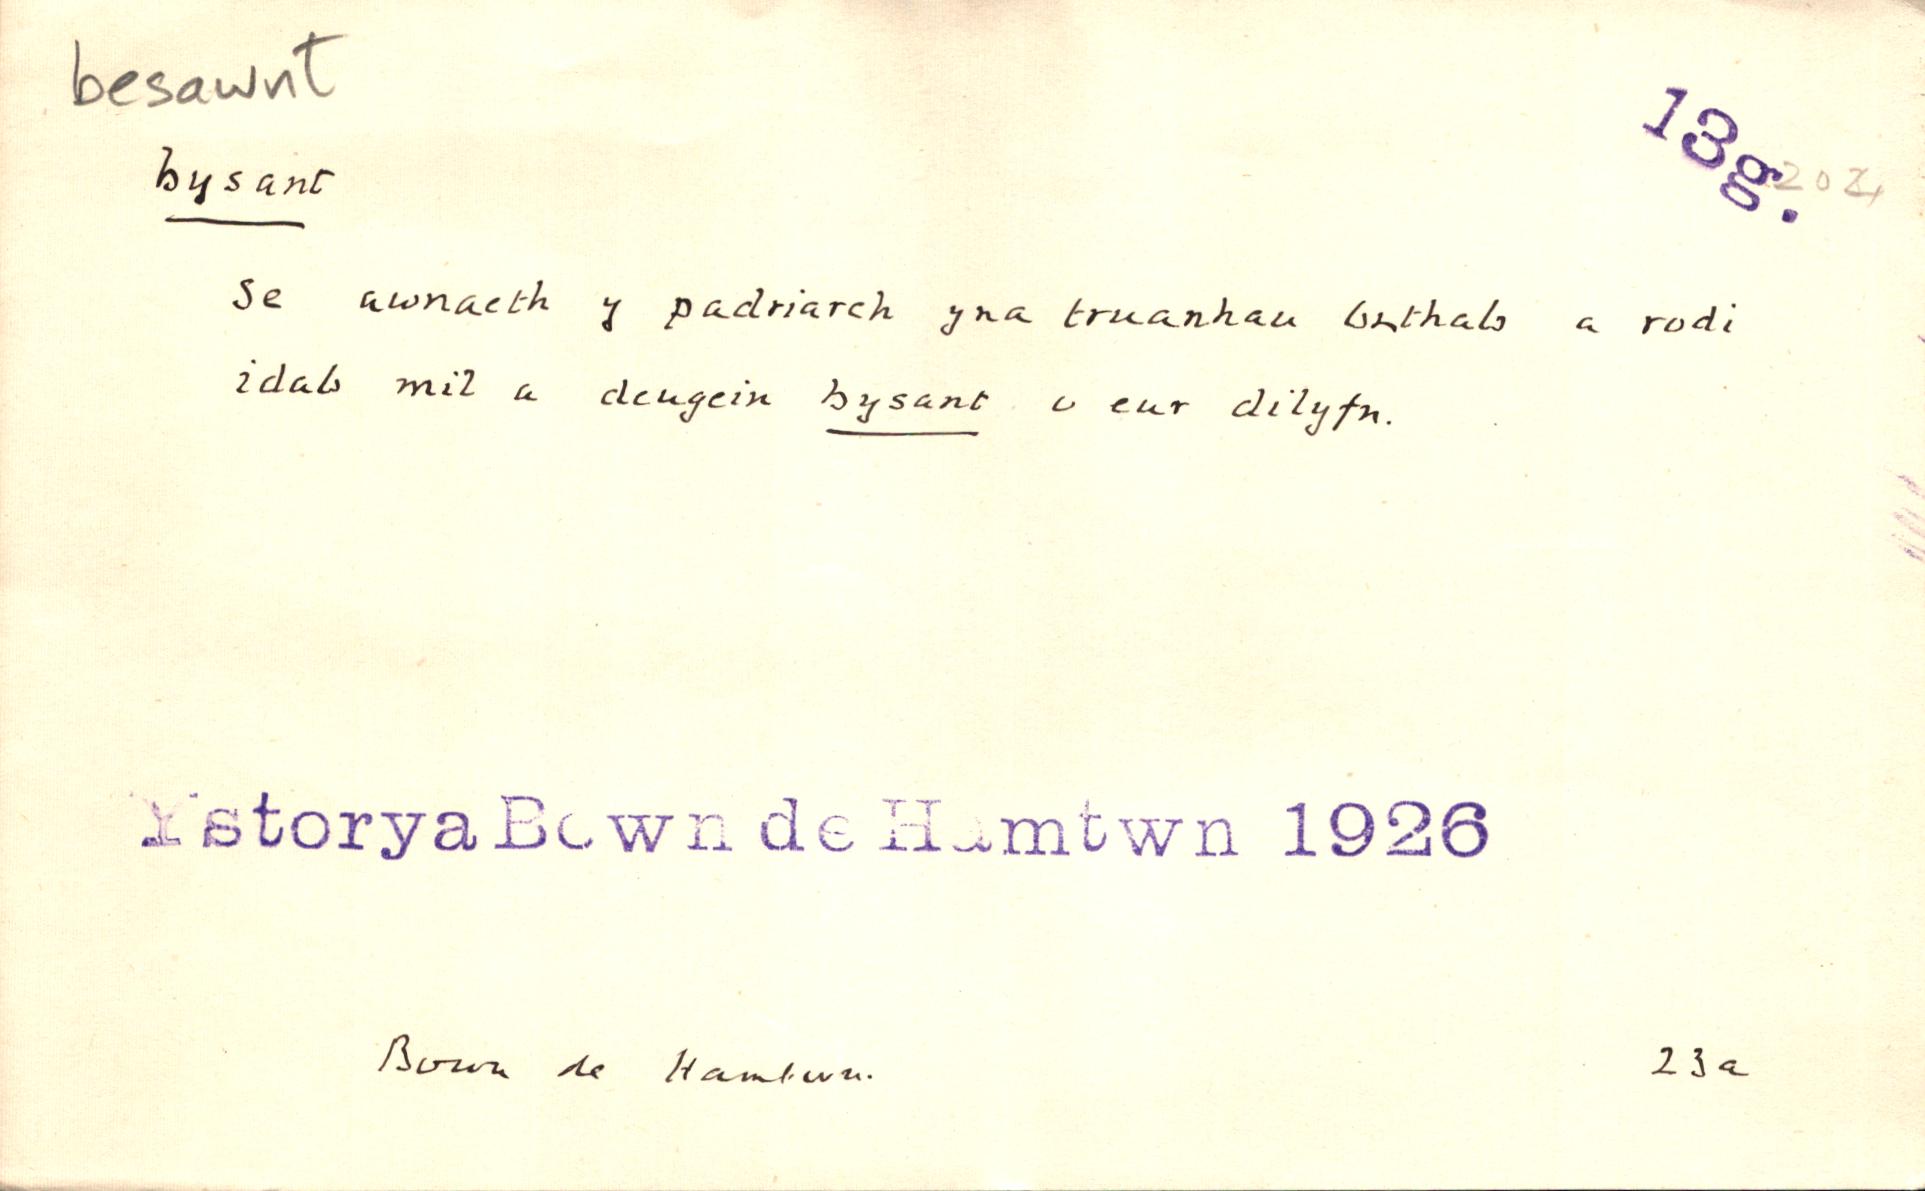 besawnt
13g.
bysant
Se awnaeth y padriarch yna truanhau ỽrthaỽ a rodi
idaỽ mil a deugein bysant o eur dilyfn.
Ystorya Bown de Hamtwn 1926
Bown de Hamtwn. 23a